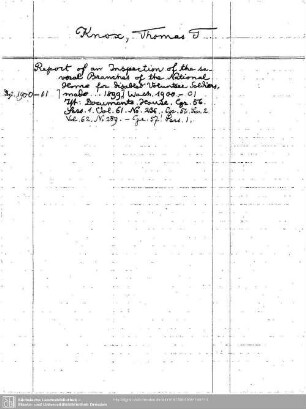 Knox, Thomas T
Report of an Inspection of the se-
veral Branches of the National
Home for disabled Volunteer Soldiers,
Bg. 1900-01 made .. 1899/ Wash. 1900-01
Documents, House. Cgr. 56.
Sess. 1. Vol. 61. No.
Vol. 62. N. 289. - Cgr. 57. Sess. 1.
Sächsische Landesbibliothek -
Staats- und Universitätsbibliothek Dresden